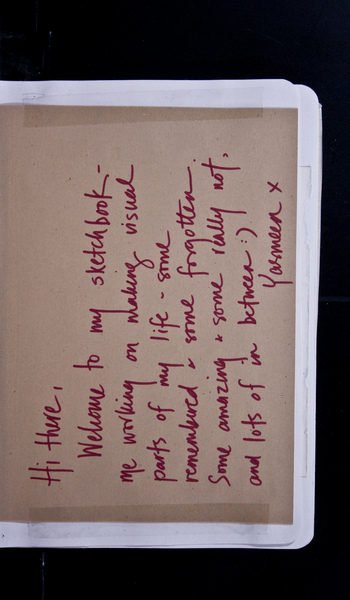 Hi there,
Welcome to my sketchbook -
me working on making visual
parts of my life - some
remembered & some forgotten.
Some amazing & some really not,
and lots of in between :)
Yasmeen x